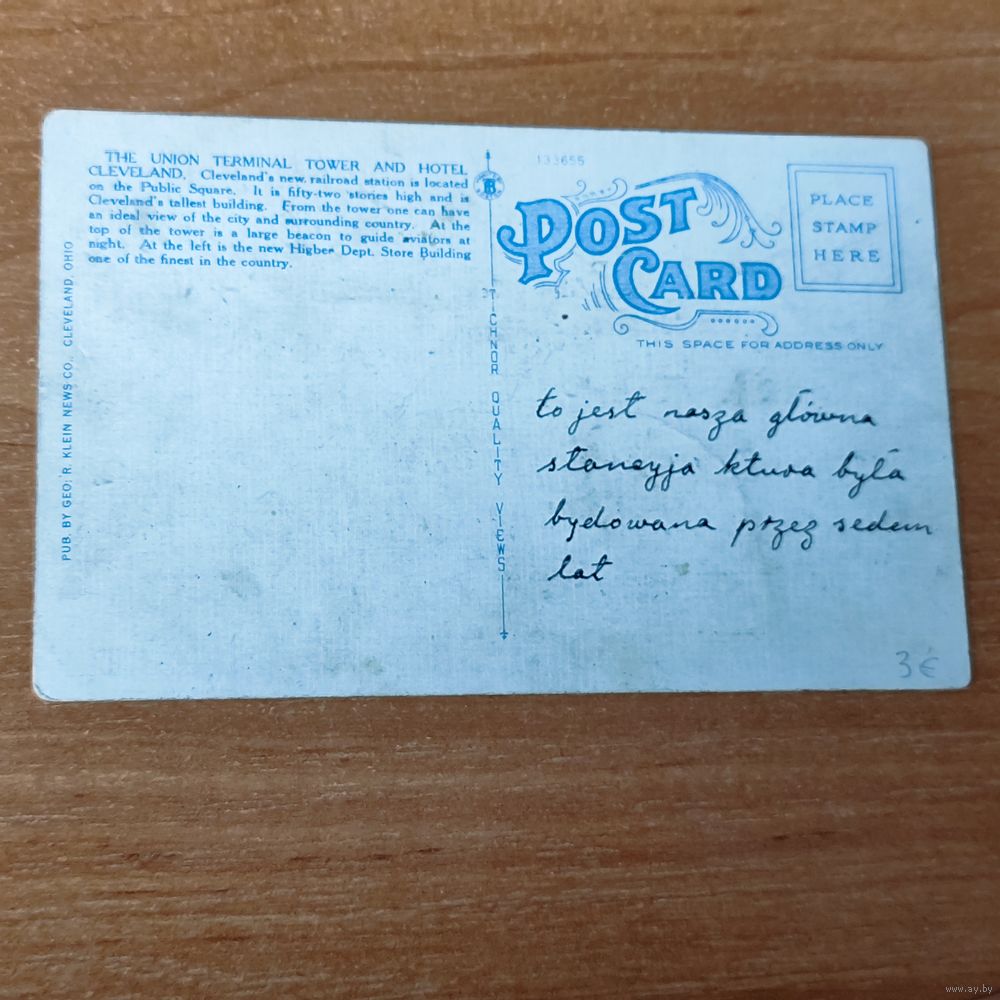 THE UNION TERMINAL TOWER AND HOTEL
CLEVELAND. Cleveland's new railroad station is located
on the Public Square. It is fifty-two stories high and is
Cleveland's tallest building. From the tower one can have
an ideal view of the city and surrounding country. At the
top of the tower is a large beacon to guide aviators at
night. At the left is the new Higbee Dept. Store Building
one of the finest in the country.
PUB. BY GEO. R. KLEIN NEWS CO., CLEVELAND, OHIO
TICHNOR QUALITY VIEWS
133655
POST
CARD
PLACE
STAMP
HERE
THIS SPACE FOR ADDRESS ONLY
to jest nasza główna
stancyja ktura była
bydowana przez sedem
lat
3 €
www.ay.by